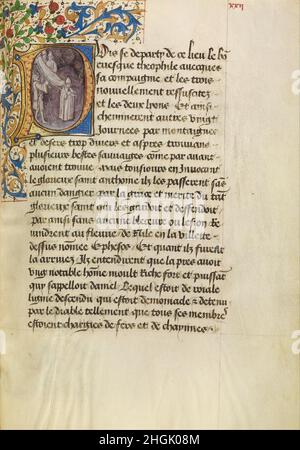 xxxi
Puis se departy de ce lieu le bõ
evesque theophile avecques
sa compaignie et les trois
nouvellement ressuscitez
et les deux lyons Et ainsi
cheminerent autres vingt
journees par montaignes
et desers trop divers et aspres trouvans
plusieurs bestes sauvaiges come par avant
avoient trouve tousiours en Invocant
le glorieux saint anthoine ilz les passerent sãs
aucun dangier par la grace et merite du dit
glorieux saint qui les gardoit et deffendoit
par ainsi sans aucune bleceure ou lesion se
rendirent au fleuve de Nile en la villete
dessus nomee Ephesos Et quant ilz furẽt
la arrivez Ilz entendirent que la pres avoit
ung notable home moult riche fort et puissãt
qui sappelloit daniel Lequel estoit de roiale
ligne descendu qui estoit demoniacle et detenu
par le diable tellement que tous ses membres
estoient chargies de fers et de chaynnes
alamy
Image ID: 2HGK08M
www.alamy.com